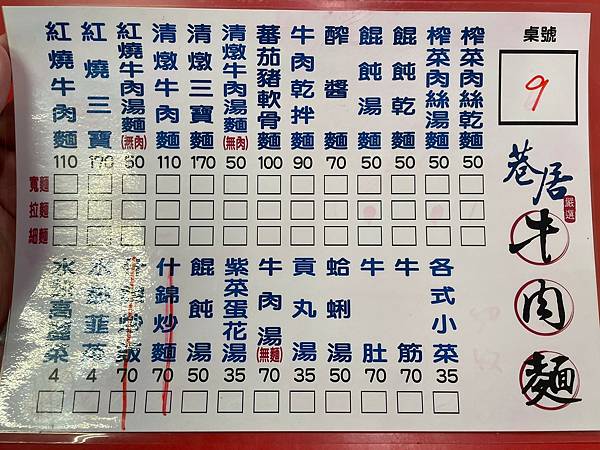 紅燒牛肉麵 110
紅燒三寶麵 170
紅燒牛肉湯麵(無肉) 50
清燉牛肉麵 110
清燉三寶麵 170
清燉牛肉湯麵(無肉) 50
蕃茄豬軟骨麵 100
牛肉乾拌麵 90
醡醬麵 70
餛飩湯麵 50
餛飩乾麵 50
榨菜肉絲湯麵 50
榨菜肉絲乾麵 50
寬麵
拉麵
細麵
水餃高麗菜 4
水餃韭菜 4
什錦炒飯 70
什錦炒麵 70
餛飩湯 50
紫菜蛋花湯 35
牛肉湯(無麵) 70
貢丸湯 35
蛤蜊湯 50
牛肚 70
牛筋 70
各式小菜 35
桌號
9
巷居
嚴選
牛肉麵